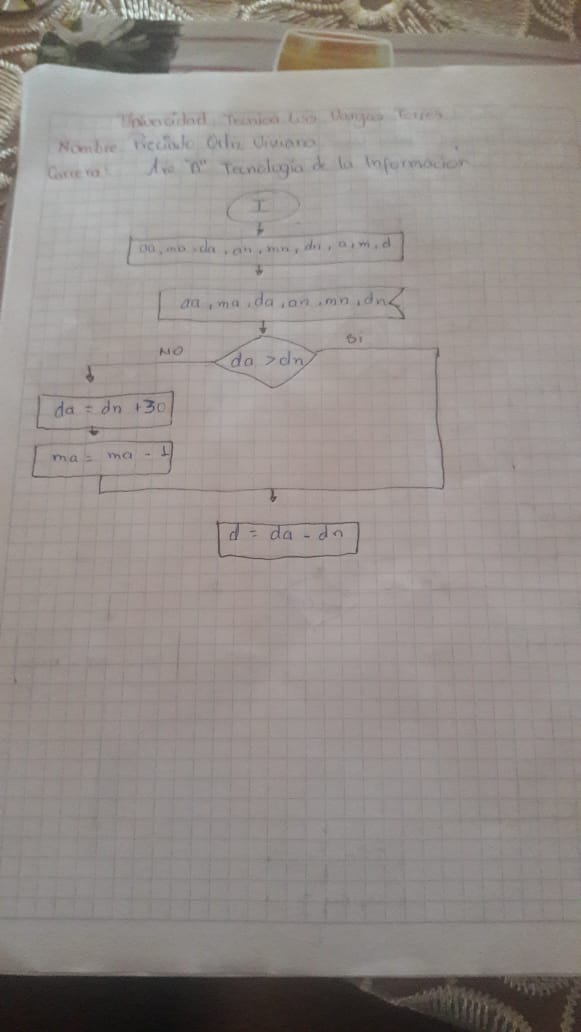 Universidad Tecnica Luis Vargas Torres
Nombre Ortiz Viviana
Carrera: "A" Tecnología de la Información
I
aa, ma, da, an, mn, dn, a, m, d
aa, ma, da, an, mn, dn
NO
Si
da > dn
da = dn +30
ma = ma - 1
d = da - dn